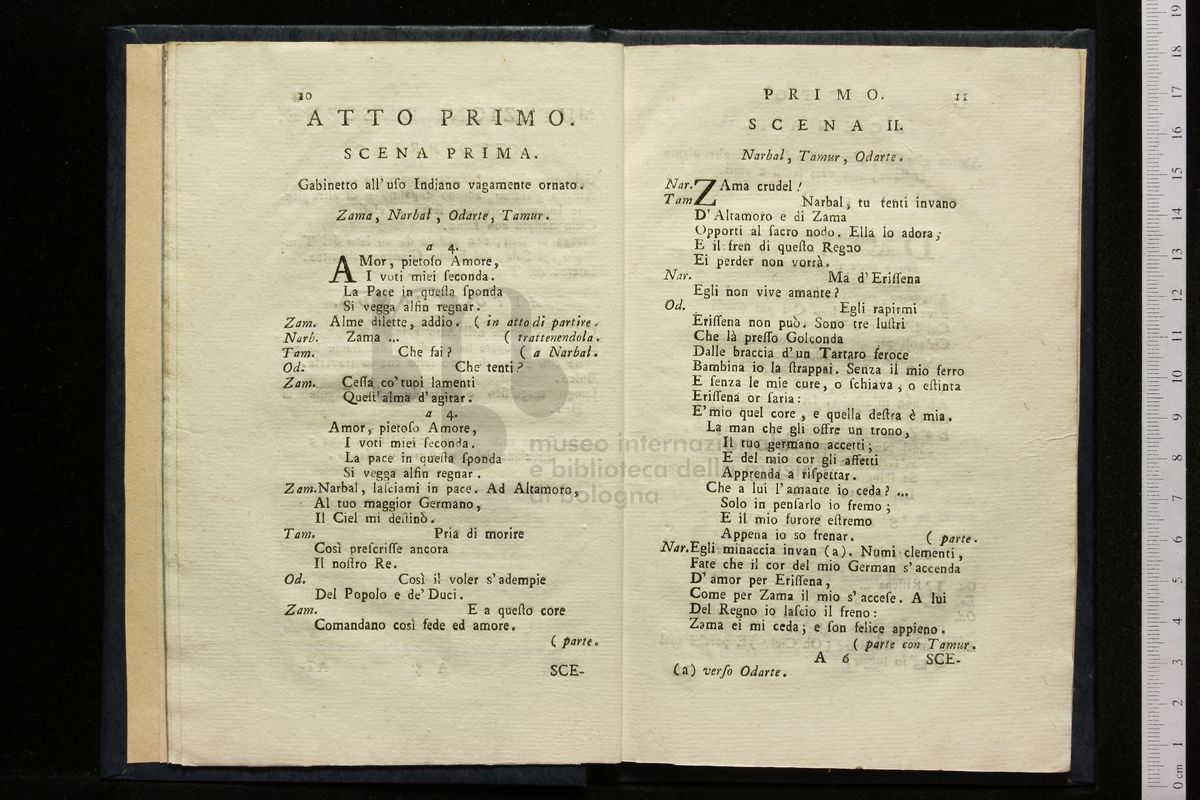 10
ATTO PRIMO.
SCENA PRIMA.
Gabinetto all'uſo Indiano vagamente ornato.
Zama, Narbal, Odarte, Tamur.
a 4.
AMor, pietoſo Amore,
I voti miei ſeconda.
La Pace in queſta ſponda
Si vegga alfin regnar.
Zam. Alme dilette, addio. ( in atto di partire.
Narb. Zama ... ( trattenendola.
Tam. Che fai? ( a Narbal.
Od. Che tenti?
Zam. Ceſſa co'tuoi lamenti
Queſt'alma d'agitar.
a 4.
Amor, pietoſo Amore,
I voti miei ſeconda.
La pace in queſta ſponda
Si vegga alfin regnar.
Zam. Narbal, laſciami in pace. Ad Altamoro,
Al tuo maggior Germano,
Il Ciel mi deſtinò.
Tam. Pria di morire
Così preſcriſſe ancora
Il noſtro Re.
Od. Così il voler s'adempie
Del Popolo e de'Duci.
Zam. E a queſto core
Comandano così fede ed amore.
( parte.
SCE-
PRIMO. 11
SCENA II.
Narbal, Tamur, Odarte.
Nar. ZAma crudel!
Tam. Narbal, tu tenti invano
D'Altamoro e di Zama
Opporti al ſacro nodo. Ella lo adora;
E il fren di queſto Regno
Ei perder non vorrà.
Nar. Ma d'Eriſſena
Egli non vive amante?
Od. Egli rapirmi
Eriſſena non può. Sono tre luſtri
Che là preſſo Golconda
Dalle braccia d'un Tartaro feroce
Bambina io la ſtrappai. Senza il mio ferro
E ſenza le mie cure, o ſchiava, o eſtinta
Eriſſena or ſaria:
E'mio quel core, e quella deſtra è mia.
La man che gli offre un trono,
Il tuo germano accetti;
E del mio cor gli affetti
Apprenda a riſpettar.
Che a lui l'amante io ceda? ...
Solo in penſarlo io fremo;
E il mio furore eſtremo
Appena io so frenar. ( parte.
Nar. Egli minaccia invan (a). Numi clementi,
Fate che il cor del mio German s'accenda
D'amor per Eriſſena,
Come per Zama il mio s'acceſe. A lui
Del Regno io laſcio il freno:
Zama ei mi ceda; e ſon felice appieno.
( parte con Tamur.
A 6 SCE-
(a) verſo Odarte.
museo internazionale
e biblioteca della musica
di bologna
19
18
17
16
15
14
13
12
11
10
9
8
7
6
5
4
3
2
1
0 cm